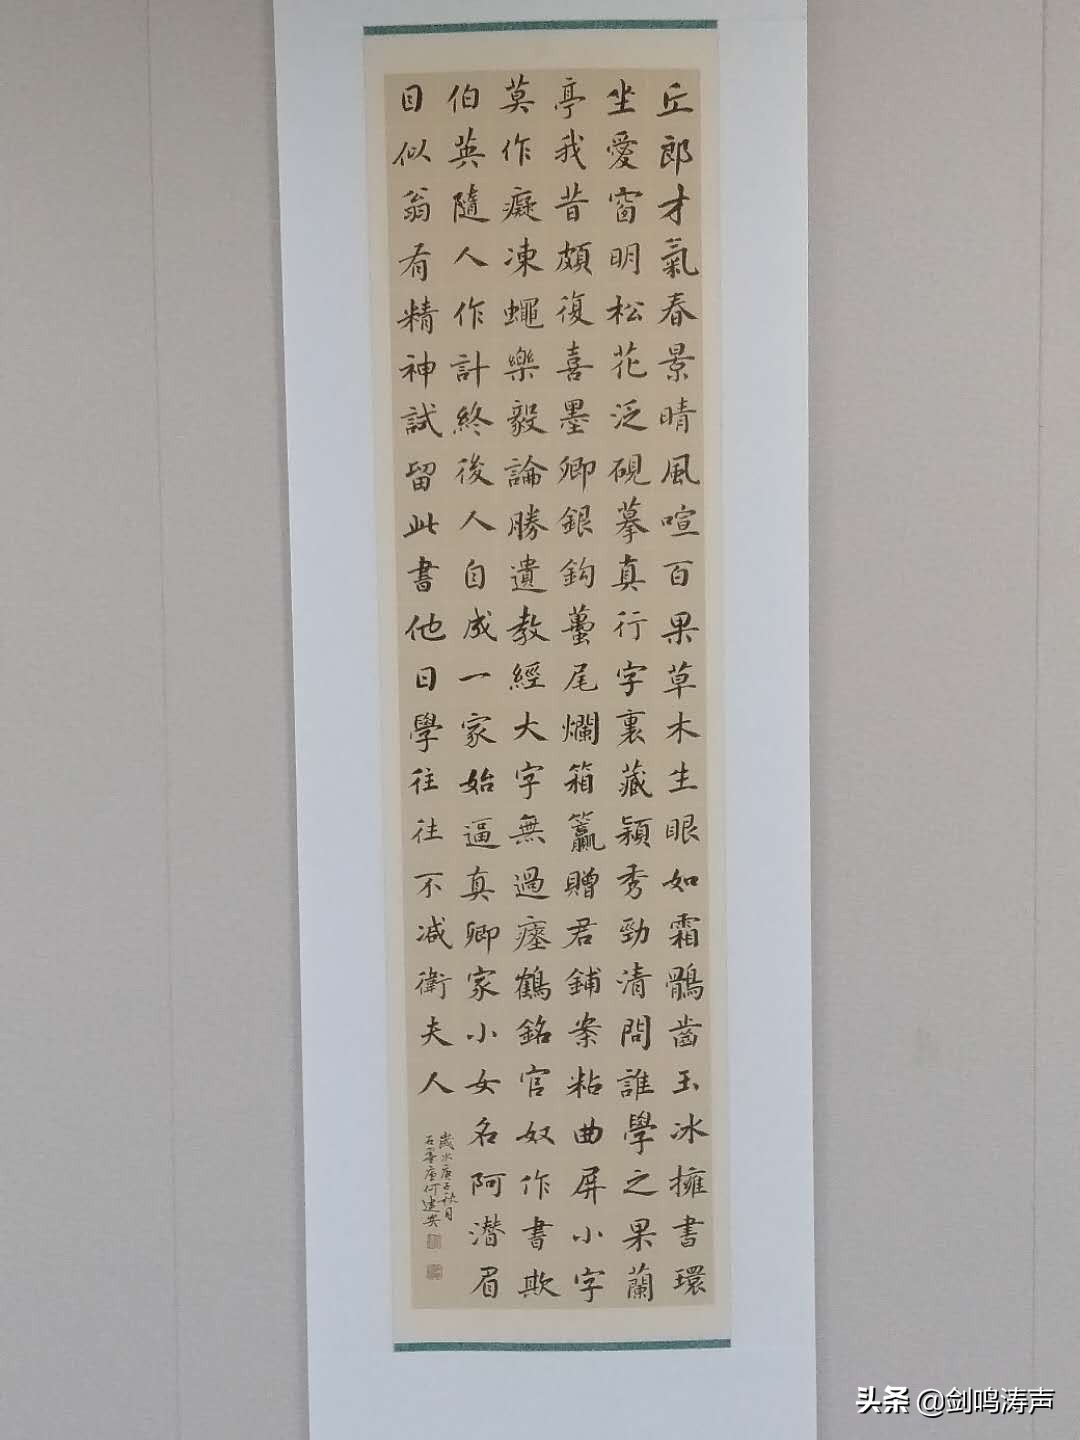 丘郎才氣春景晴風喧百果草木生眼如霜鶻齒玉冰擁書環
坐愛窗明松花泛硯摹真行字裏藏潁秀勁清問誰學之果蘭
亭我昔頗復喜墨卿銀鈎蠆尾爛箱籯贈君鋪案粘曲屏小字
莫作癡凍蠅樂毅論勝遺教經大字無過瘞鶴銘官奴作書欺
伯英隨人作計終後人自成一家始逼真卿家小女名阿潜眉
目似翁有精神試留此書他日學往往不减衛夫人
歲次庚子秋月
何建安
头条 @剑鸣涛声